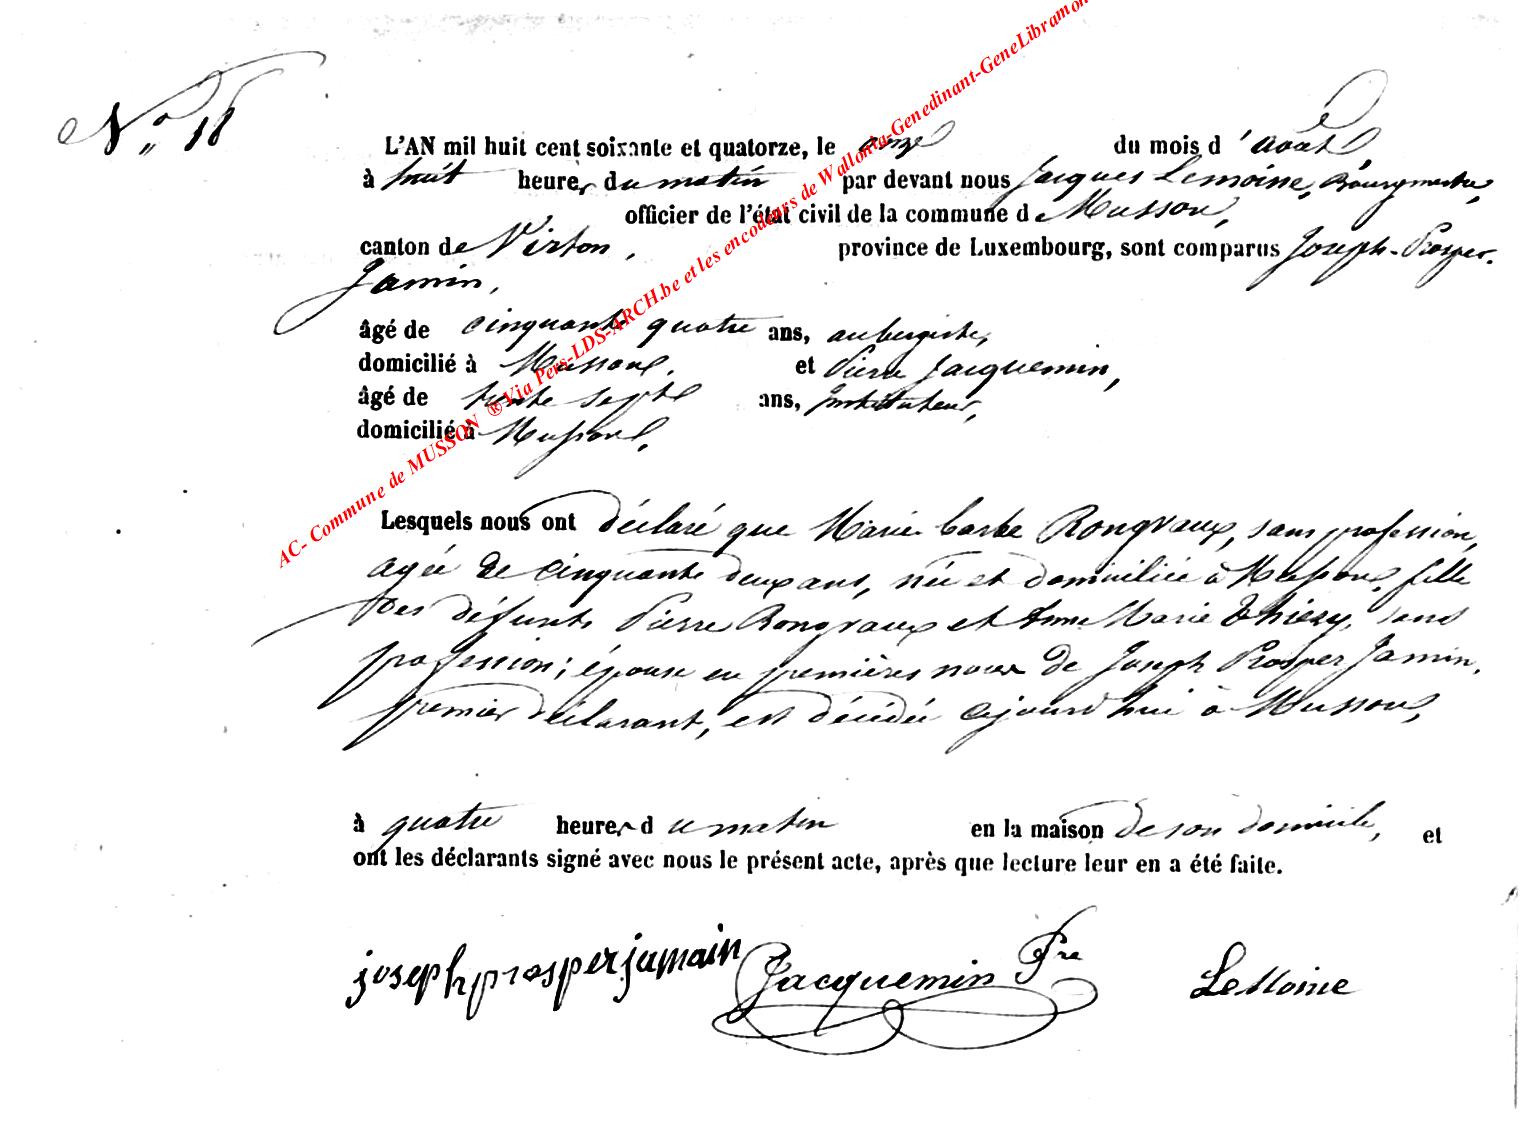 N.° 18
L'AN mil huit cent soixante et quatorze, le onze du mois d'août,
à huit heures du matin par devant nous Jacques Lemoine, Bourgmestre,
officier de l'état civil de la commune de Musson,
canton de Virton, province de Luxembourg, sont comparus Joseph-Prosper
Jamin,
âgé de cinquante quatre ans, aubergiste,
domicilié à Musson, et Pierre Jacquemin,
âgé de trente sept ans, Instituteur,
domicilié à Musson,
Lesquels nous ont déclaré que Marie barbe Rongvaux, sans profession,
agée de cinquante deux ans, née et domiciliée à Musson, fille
des défunts Pierre Rongvaux et Anne Marie Thiery, sans
profession; épouse en premières noces de Joseph Prosper Jamin,
premier déclarant, est décédée aujourd'hui à Musson,
à quatre heures du matin en la maison de son domicile, et
ont les déclarants signé avec nous le présent acte, après que lecture leur en a été faite.
joseph prosper jamain Jacquemin Pre LeMoine
AC- Commune de MUSSON ® Via Pers-LDS-ARCH.be et les encodeurs de Wallonia-Genedinant-GeneLibramon